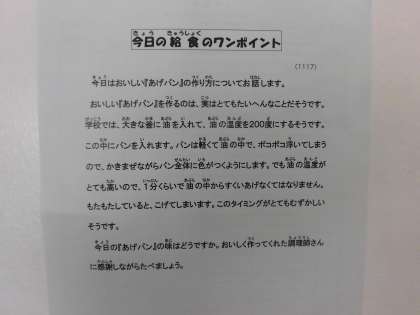 今日の給食のワンポイント
(1117)
今日はおいしい『あげパン』の作り方についてお話します。
おいしい『あげパン』を作るのは、実はとてもたいへんなことだそうです。
学校では、大きな釜に油を入れて、油の温度を200度にするそうです。
この中にパンを入れます。パンは軽くて油の中で、ポコポコ浮いてしまう
ので、かきまぜながらパン全体に色がつくようにします。でも油の温度が
とても高いので、1分くらいで油の中からすくいあげなくてはなりません。
もたもたしていると、こげてしまいます。このタイミングがとてもむずかしい
そうです。
今日の『あげパン』の味はどうですか。おいしく作ってくれた調理師さん
に感謝しながらたべましょう。